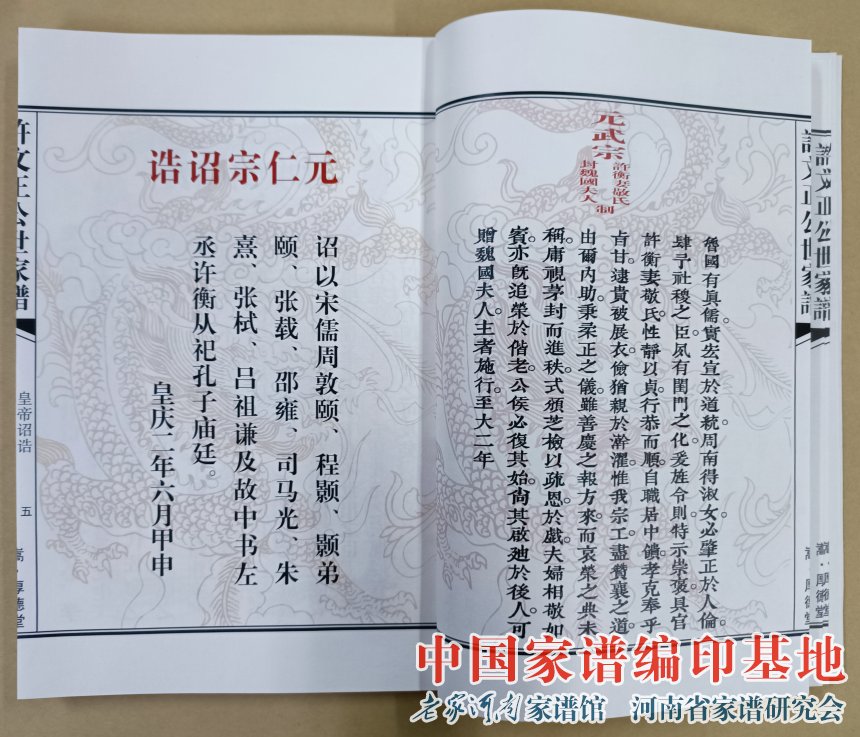 許文正公世家譜
嵩·厚德堂
元武宗
許衡妻敬氏
封魏國夫人
制
魯國有眞儒。實宏宣於道統。周南得淑女。必肇正於人倫。
肆予社稷之臣。夙有閨門之化。爰旌令則。特示崇褒。具官
許衡妻敬氏。性靜以貞。行恭而順。自職居中饋。孝克奉乎
旨甘。逮貴被展衣。儉猶親於澣濯。惟我宗工。盡贊襄之道。
由爾內助。秉柔正之儀。雖善慶之報方來。而哀榮之典未
稱。庸視茅封而進秩。式頒芝檢以疏恩。於戲。夫婦相敬如
賓。亦旣追榮於偕老。公侯必復其始。尚其啟迪於後人。可
贈魏國夫人。主者施行。至大二年
元仁宗诏诰
诏以宋儒周敦颐、程颢、颢弟
颐、张载、邵雍、司马光、朱
熹、张栻、吕祖谦及故中书左
丞许衡从祀孔子庙廷。
皇庆二年六月甲申
許文正公世家譜
皇帝诏诰
五
嵩·厚德堂
中国家谱编印基地
老家河南家谱馆 河南省家谱研究会